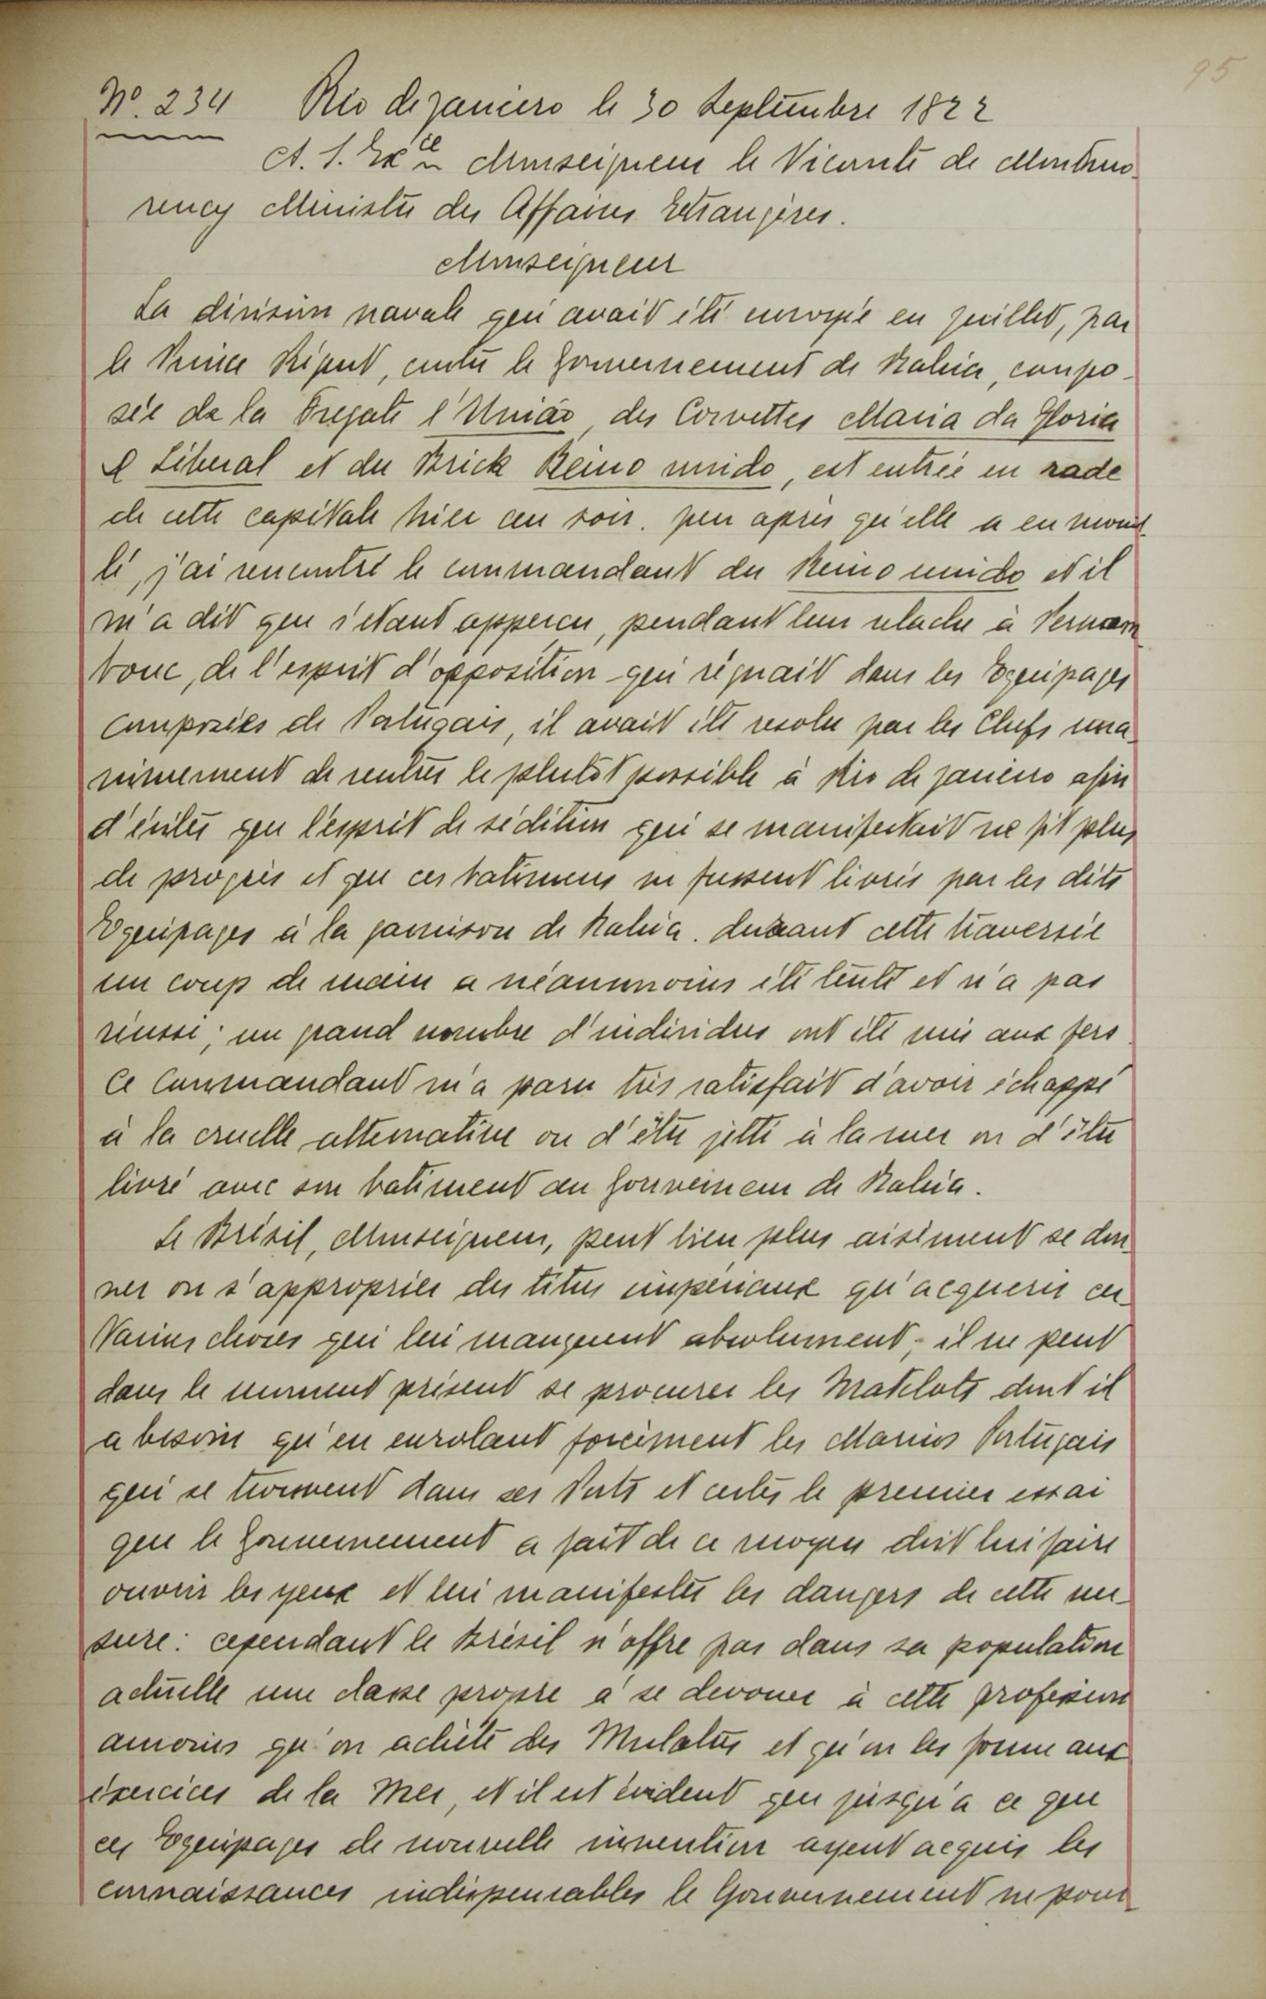 95
Nº. 234 Rio de janeiro le 30 Septembre 1822
A. S. Exce Monseigneur le Vicomte de Montmo-
rency Ministre des Affaires Etrangères.
Monseigneur
La division navale qui avait été envoyée en juillet, par
le Prince Régent, contre le Gouvernement de Bahia, compo-
sée de la Fregate l'União, des Corvettes Maria da Gloria
& Liberal et du Brick Reino unido, est entrée en rade
de cette capitale hier au soir. peu après qu'elle a eu mouil-
lé, j'ai rencontré le commandant du Reino unido et il
m'a dit que s'etant apperçu, pendant leur relache à Pernam-
bouc, de l'esprit d'opposition qui régnait dans les Equipages
composées de Portugais, il avait été resolu par les Chefs una-
nimement de rentrer le plutôt possible à Rio de janeiro afin
d'éviter que l'esprit de sédition qui se manifestait ne fit plus
de progrès et que ces batimens ne fussent livrés par les dits
Equipages à la garnison de Bahia. durant cette traversée
un coup de main a néanmoins été tenté et n'a pas
réussi; un grand nombre d'individus ont été mis aux fers
Ce Commandant m'a paru très satisfait d'avoir échappé
à la cruelle alternative ou d'être jetté à la mer ou d'être
livré avec son batiment au Gouverneur de Bahia.
Le Brésil, Monseigneur, peut bien plus aisément se don-
ner ou s'approprier des titres impériaux qu'acquerir cer-
taines choses qui lui manquent absolument; il ne peut
dans le moment présent se procurer les Matelots dont il
a besoin qu'en enrolant forcément les Marins Portugais
qui se trouvent dans ses Ports et certes le premier essai
que le Gouvernement a fait de ce moyen doit lui faire
ouvrir les yeux et lui manifester les dangers de cette me-
sure: cependant le Brésil n'offre pas dans sa population
actuelle une classe propre a se devouer à cette profession
amoins qu'on achète des Mulatres et qu'on les forme aux
éxercices de la Mer, et il est évident que jusqu'a ce que
ces Equipages de nouvelle invention ayent acquis les
connaissances indispensables le Gouvernement ne pour-